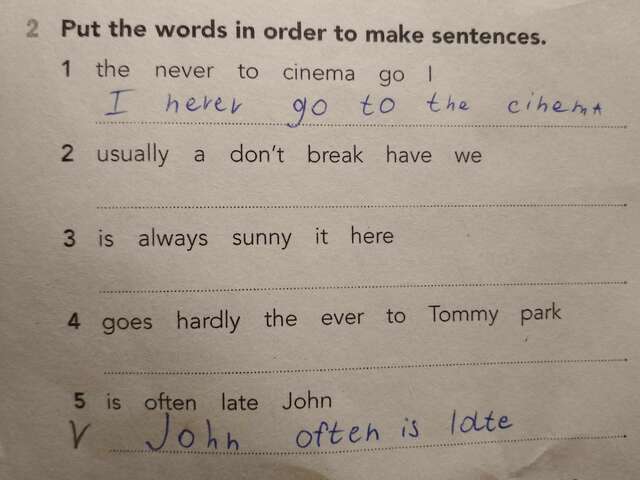 2 Put the words in order to make sentences.
1 the never to cinema go I
I never go to the cinema
2 usually a don't break have we
3 is always sunny it here
4 goes hardly the ever to Tommy park
5 is often late John
V John often is late